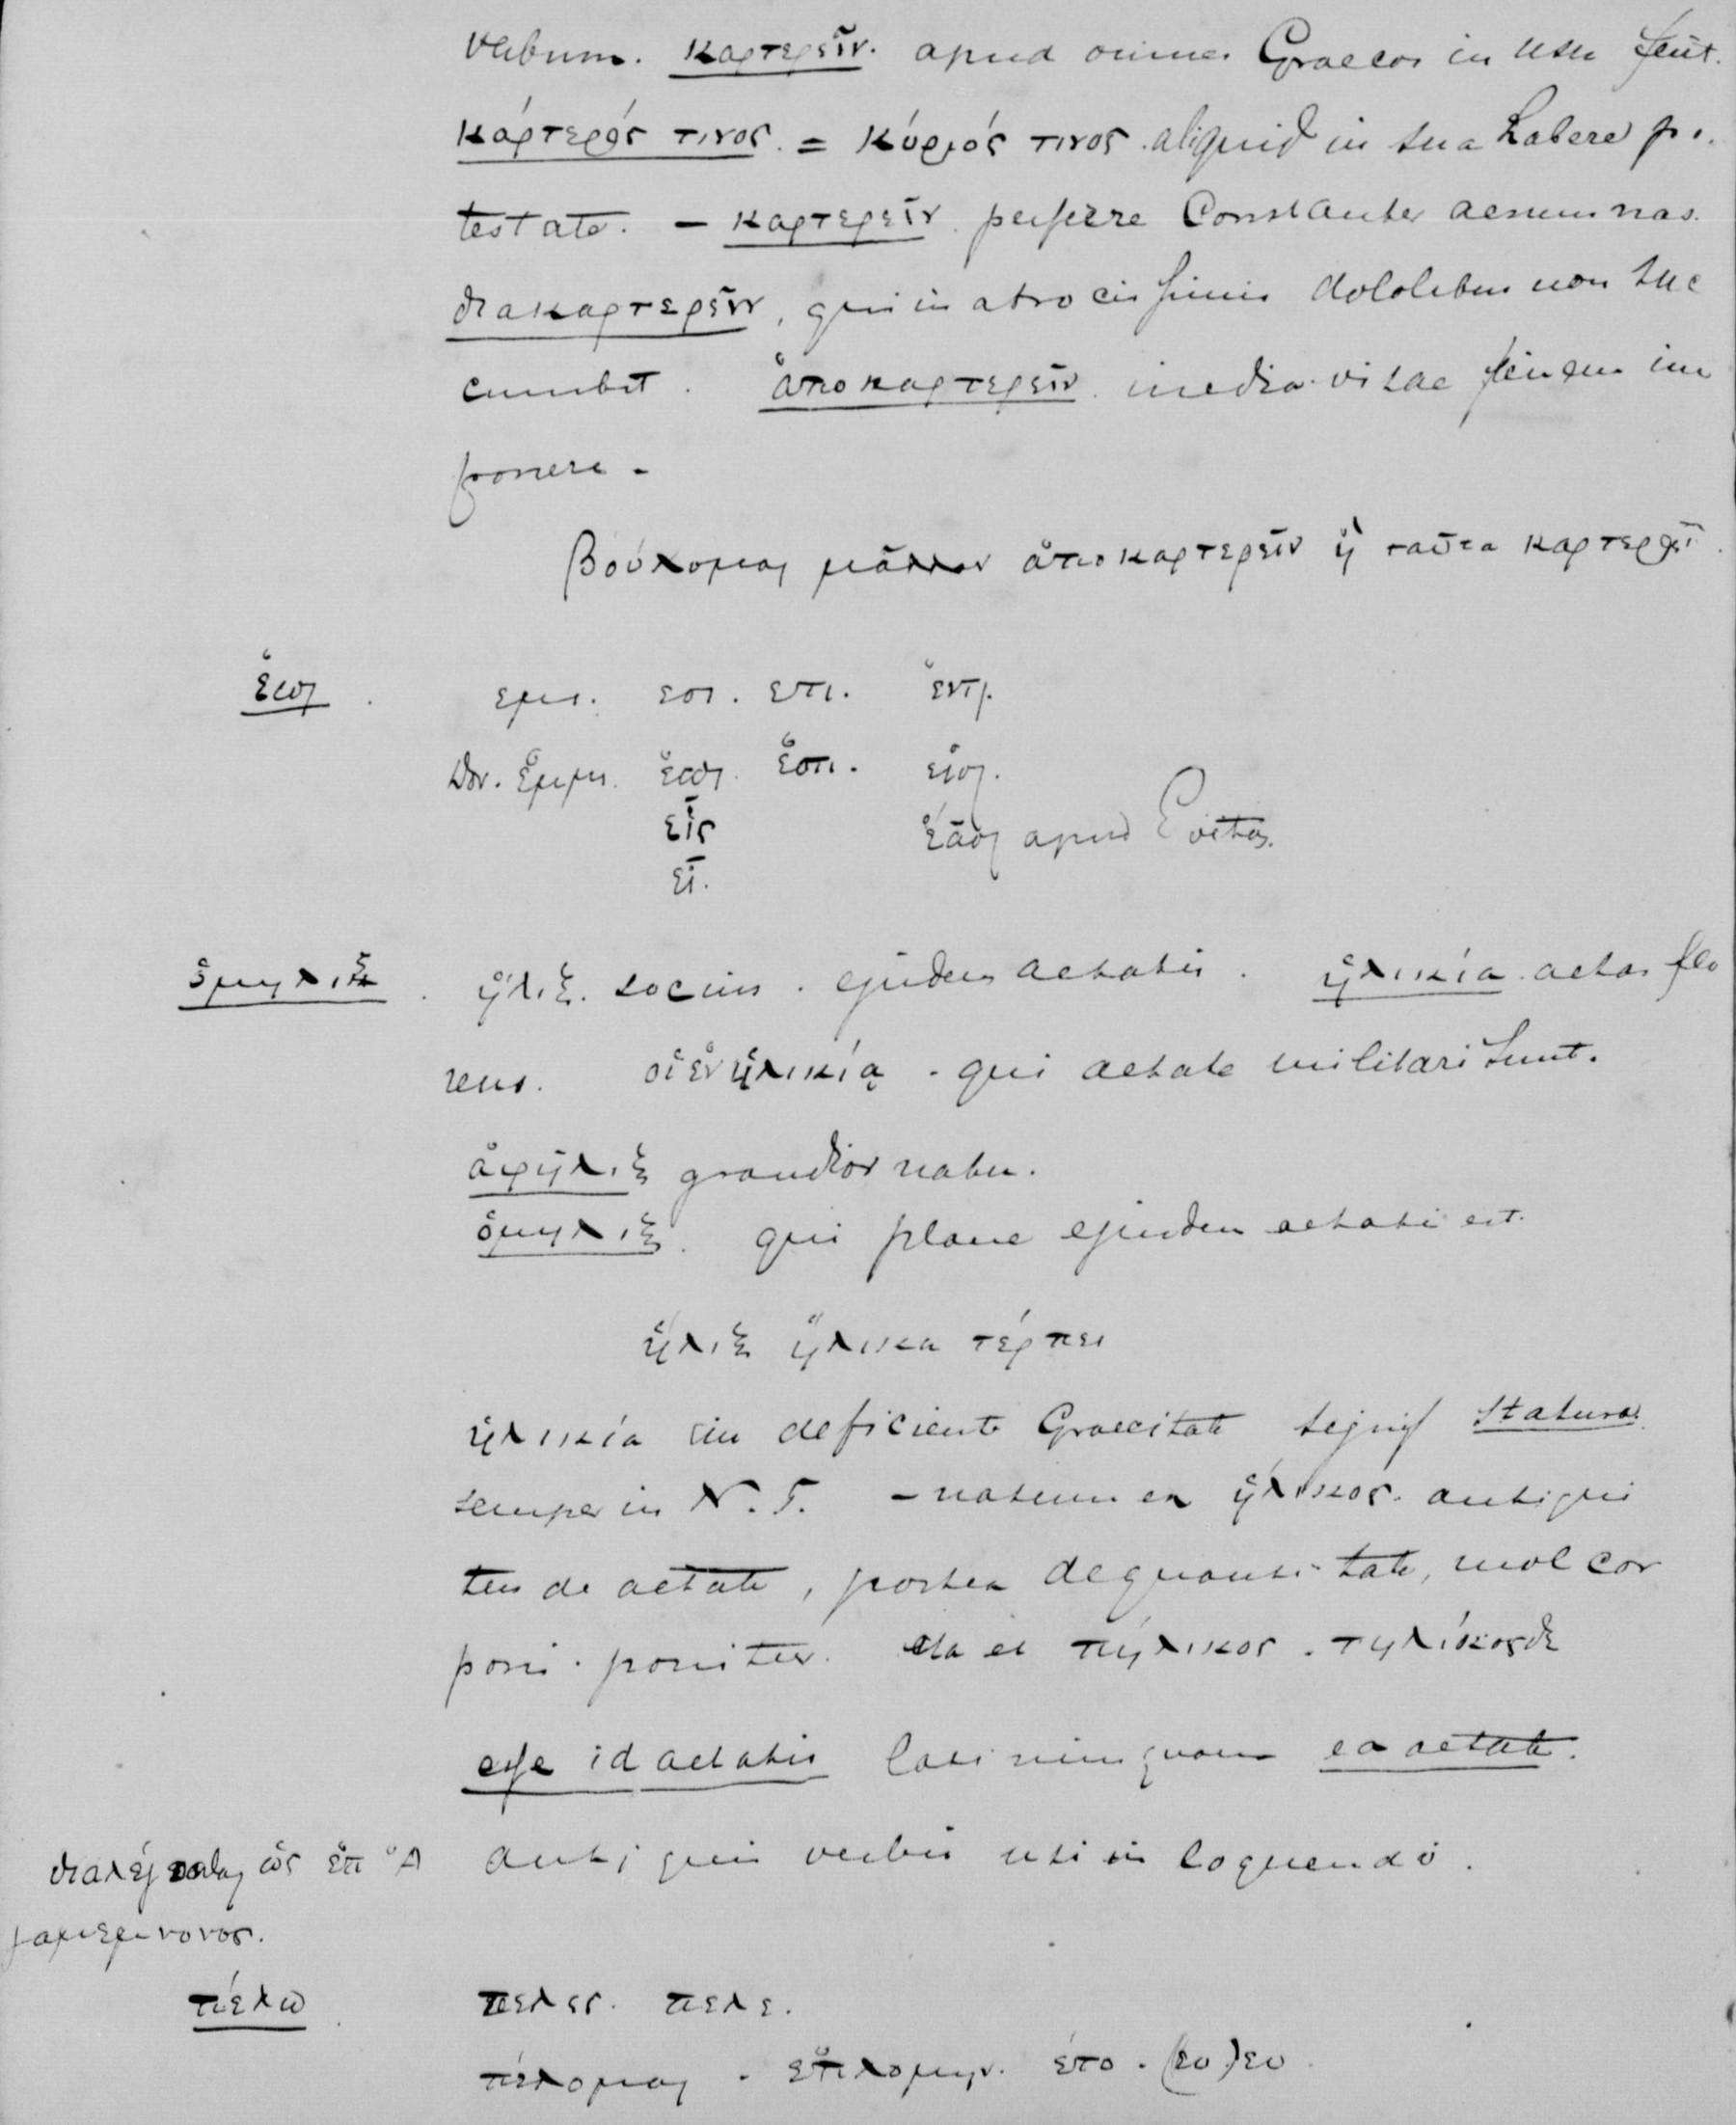 verbum. καρτερεῖν. apud omnes Graecos in usu fuit.
κάρτερός τινος. = κύριός τινος. aliquid in sua habere po.
testate. – καρτερεῖν. perferre constanter aerumnas.
διακαρτερεῖν, qui in atrocissimis doloribus non suc
cumbit. ἀποκαρτερεῖν. inedia vitae finem im
ponere -
βούλομαι μᾶλλον ἀποκαρτερεῖν ἢ ταῦτα καρτερεῖ
ἐσσι. εμι. εσι. επι. ἐντι.
Dor. ἐμμι. ἐσσι. ἐστι. εἰσι.
εἶς ἐᾶσι apud
εἶ.
ὁμηλιξ. ἧλιξ. socius. ejusdem aetatis. ἡλικία. aetas flo
rens. οἱ ἐν ἡλικίᾳ. qui aetate militari sunt.
ἀφῆλιξ grandior natu.
ὁμηλιξ. qui plane ejusdem aetatis est.
ἧλιξ ἥλικα τέρπει
ἡλικία in deficiente Graecitate signif statura
semper in N.T. – natum ex ἡλίκος. antiqui
tus de aetate, postea de quantitate, mol cor
poris. ponitur. ita et πήλικος. τηλίκοςδε
esse id aetatis Latini nunquam ea aetate.
διαλέγεσθαι ὡς ἐπ' Ἀ antiquis verbis uti in loquendo.
γαμεμνονος.
πέλω. πελες. πελε.
πέλομαι. ἐπελομην. ἐπο. (εο) ευ